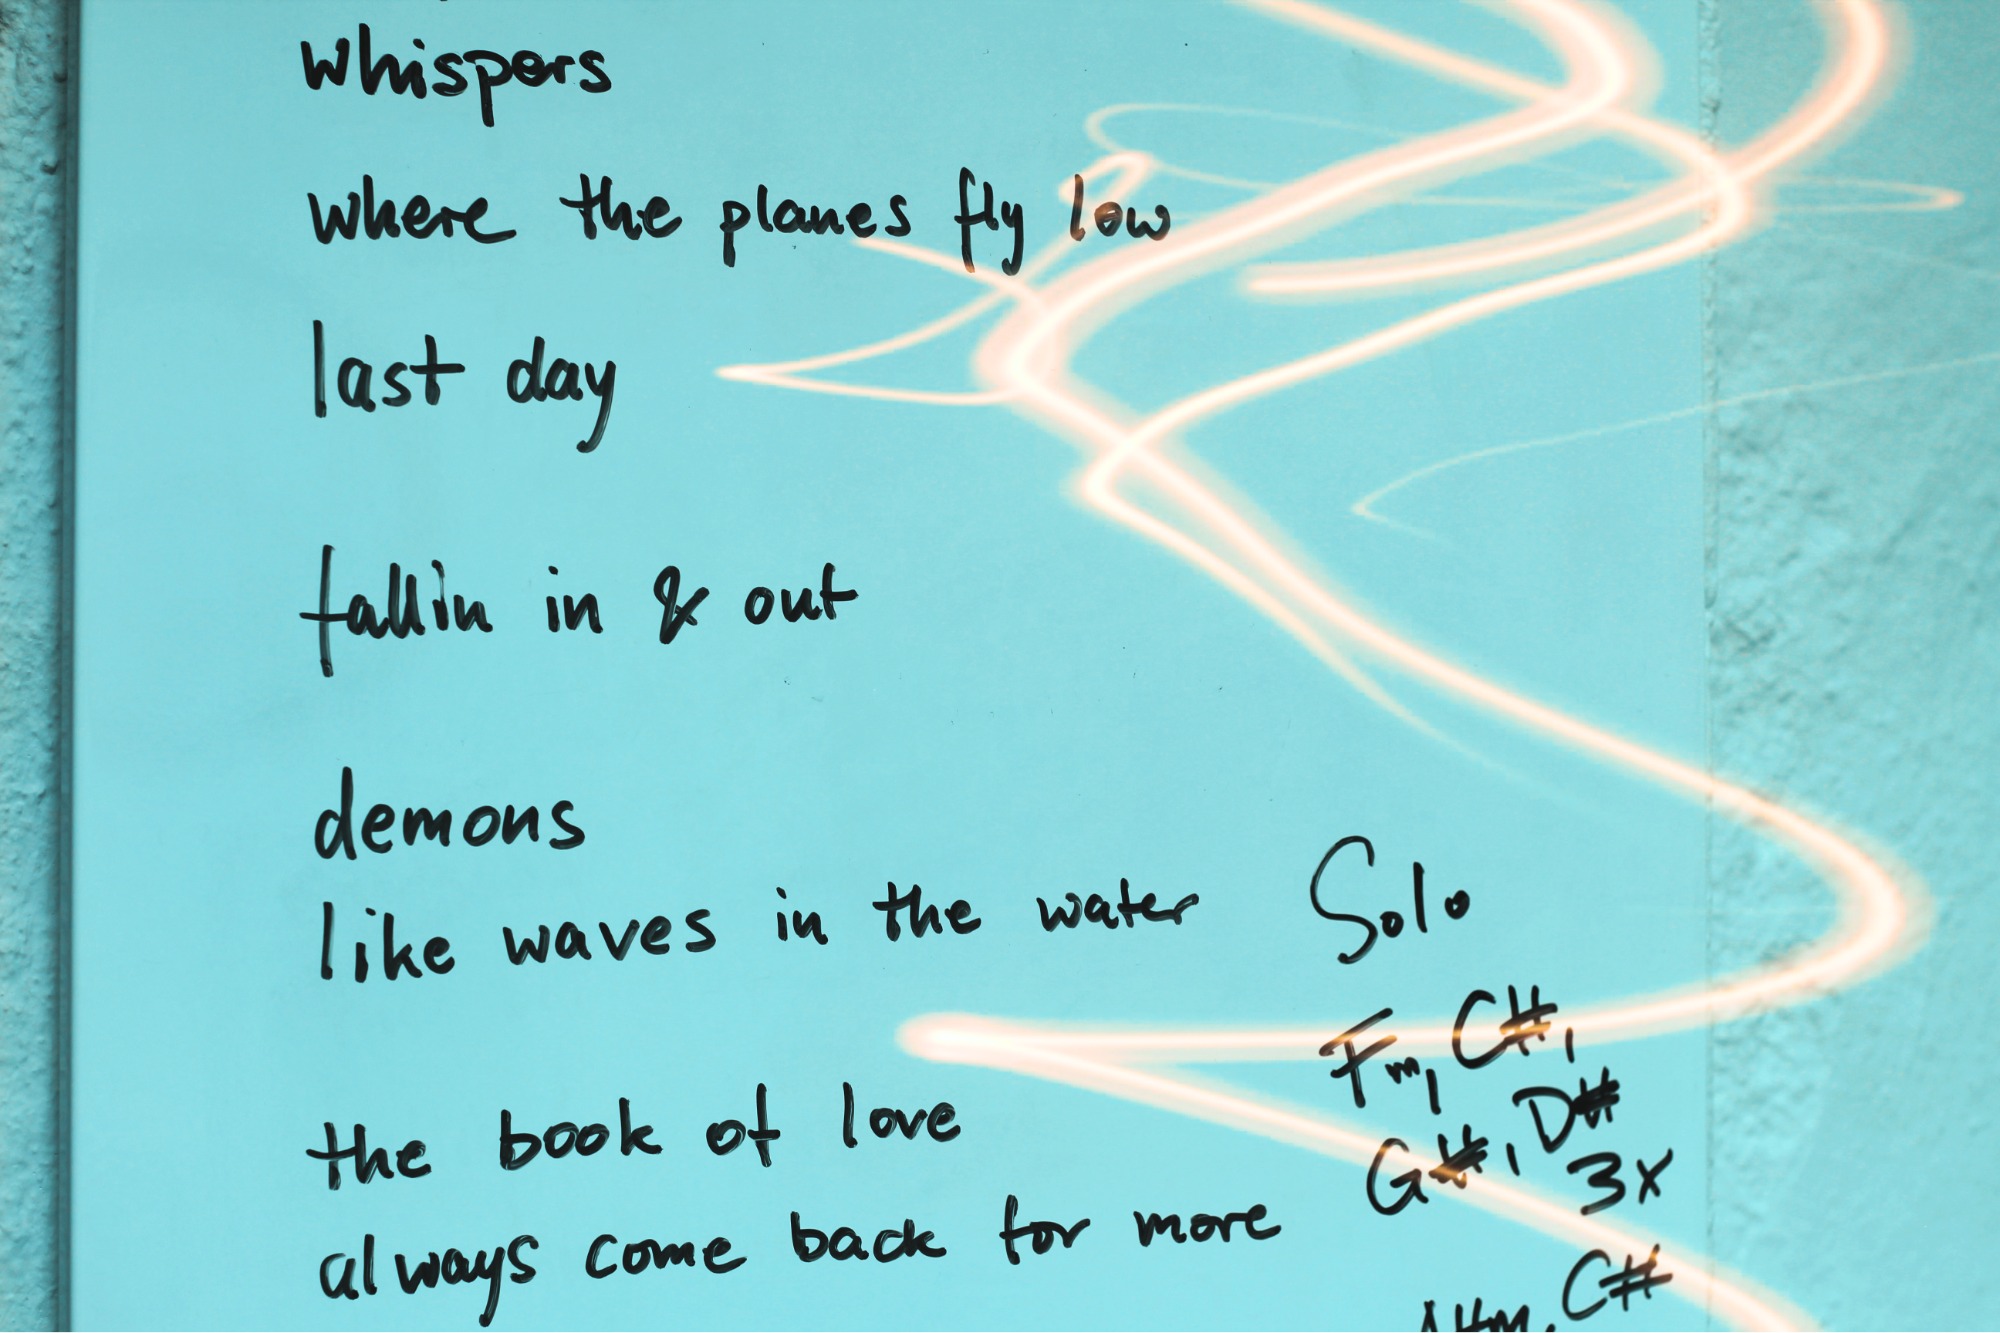 whispers
where the planes fly low
last day
fallin in & out
demons
like waves in the water
Solo
Fm, C#,
G#, D#
3x
the book of love
always come back for more
C#